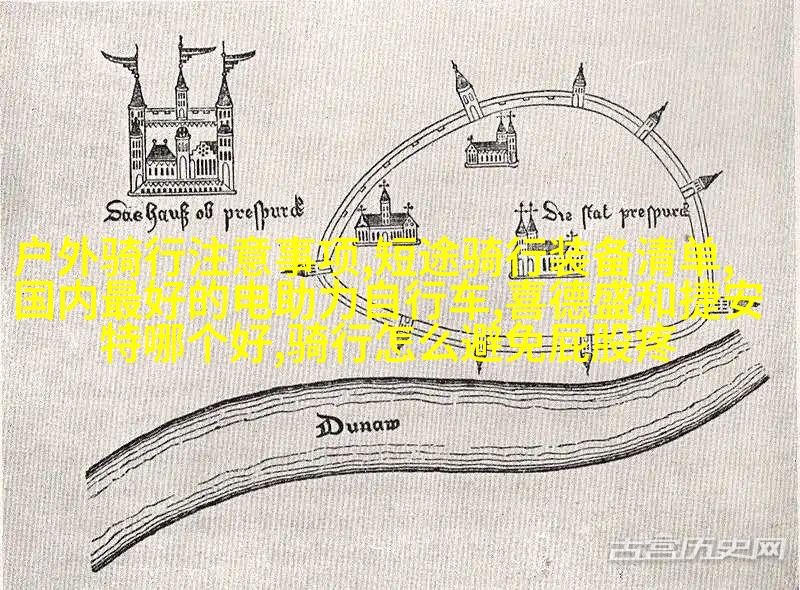 Das hauß ob prespurck
Die stat prespurck
户外骑行注意事项,短途骑行装备清单,
国内最好的电助力自行车,喜德盛和捷安
特哪个好,骑行怎么避免屁股疼
Dunaw
古宫历史网